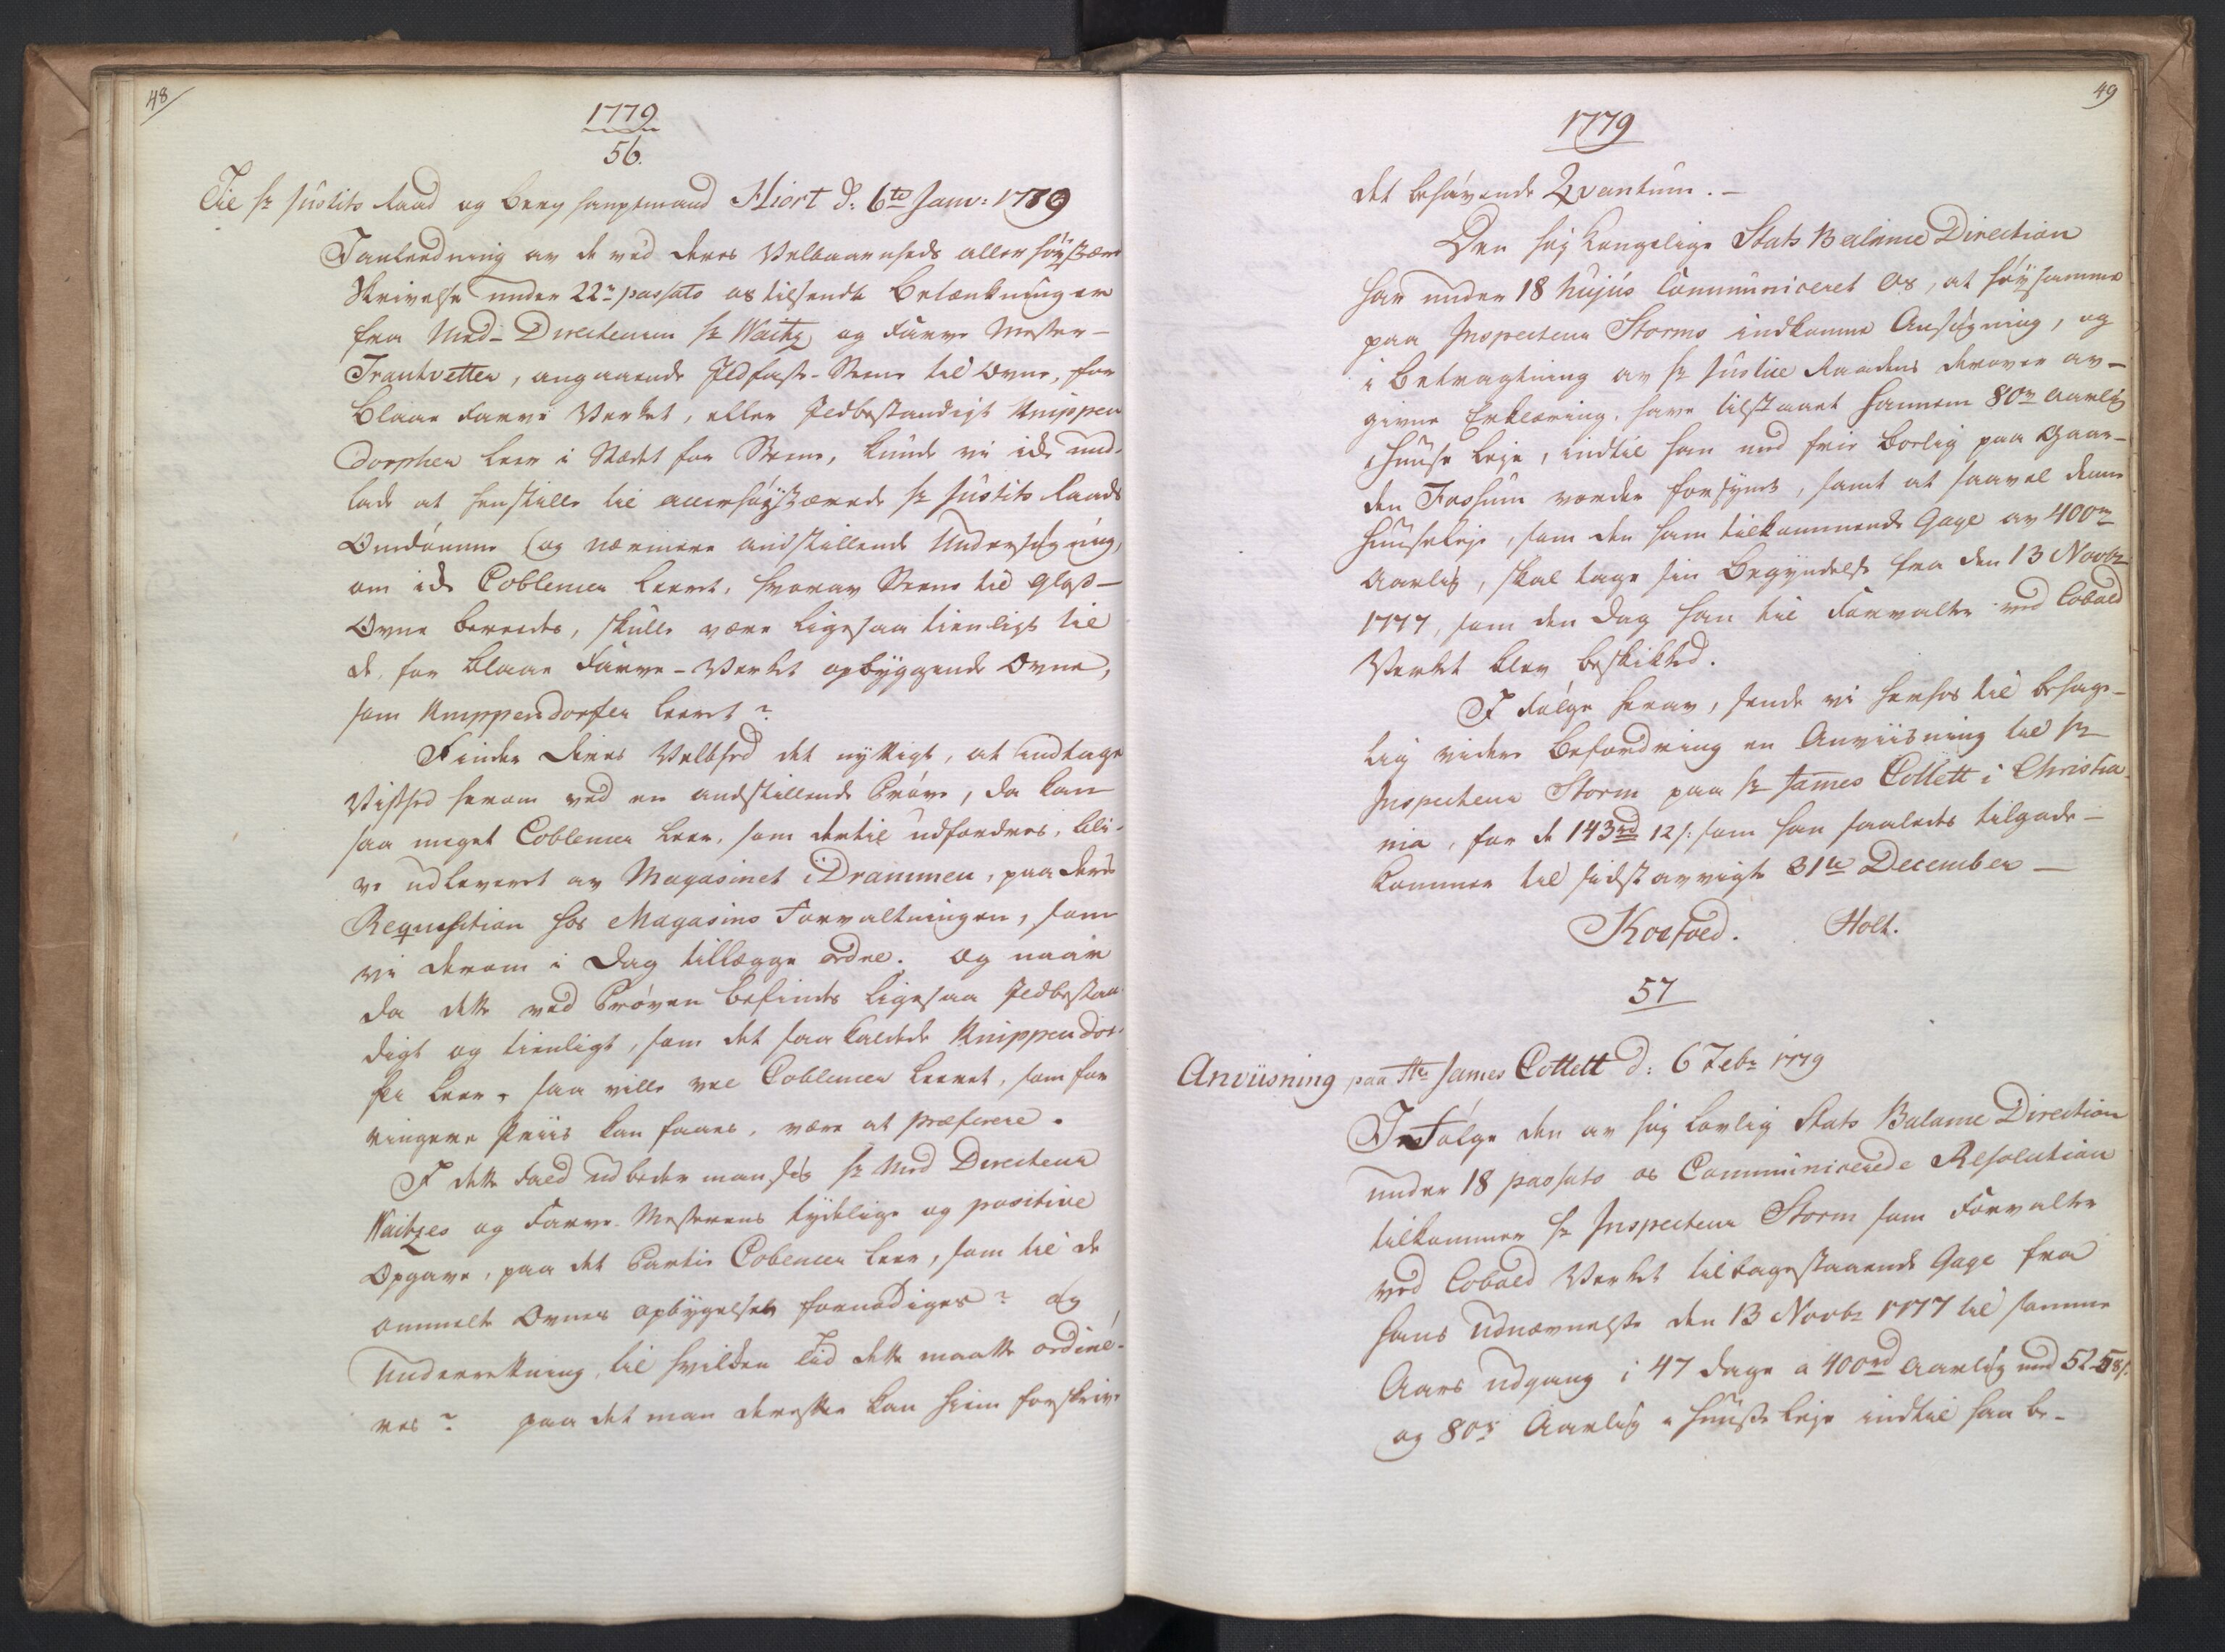 48/
1779
56.
Til Hr Justits Raad og Berg Hauptmand Hiort d: 6te Janv: 1779
I anledning av de ved deres Velbaarenheds allerhøystærede
Skrivelse under 22de passato os tilsendte Betænkninger
fra Med-Directeuren Hr Waitz og Farve Mester-
Trautvetter, angaaende Ildfaste-Steene til Ovne, for
Blaae Farve Verket, eller Ildbestandigt Knippen
dorpher Leer i Stædet for Steene, kunde vi ike und-
lade at henstille til allerhøystærede Hr Justits Raads
Omdømme (og nærmere anstillende Undersøgning,
om ike Coblencer Leeret, hvorav Steene til Glas-
Ovne bereedes, skulle være ligesaa tienligt til
de for Blaae Farve-Verket opbyggende Ovne,
som Knippendorfer Leeret?
Finder Deres Velbhed det nyttigt, at indtage
Vished herom ved en anstillende Prøve, da kan
saa meget Coblencer Leer, som dertil udfordres, bli-
ve udleveret av Magasinet i Drammen, paa deres
Requisition hos Magasins Forvaltningen, som
vi derom i Dag tillægge ordre. Og naar
da dette ved Prøven befindes ligesaa Ildbestan-
digt og tienligt, som det saa kaldede Knippendor-
fer Leer, saa ville vel Coblencer Leeret, som for
ringere Priis kan faaes, være at præferere.
I dette Fald udbeder man sig Hr Med Directeur
Waitzes og Farve-Mesterens tydelige og positive
Opgave, paa det Partie Coblencer Leer, som til de
ommelte Ovnes opbygelse fornødiges? og
Underretning, til hvilken Tid dette maatte ordine-
res? paa det man derefter kan hiem forskrive
49
1779
det behøvende Qvantum.-
Den høy Kongelige Stats Balance Direction
har under 18 hujus Communiceret Os, at høysamme
paa Inspecteur Storms indkomne Ansøgning, og
i Betragtning av Hr Justice Raadens derover av-
givne Erklæring, have tilstaaet hannem 80rd aarlig
Huuse Leje, indtil han med frie Bolig paa Gaar-
den Fossum vorder forsynet, samt at saavel denne
Huuseleje, som den ham tilkommende Gage av 400rd
Aarlig, skal tage sin Begyndelse fra den 13 Novbr
1777, som den Dag han til Forvalter ved Cobold
Verket blev beskikked.
I Følge herav, sende vi herhos til behage-
lig videre Befordring en Anviisning til Hr
Inspecteur Storm paa Hr James Collett i Christia-
nia, for de 143rd 12s: som han saaledes tilgode-
kommer til sidst avvigte 31te December -
Koefoed. Holt.
57
Anviisning paa Hr James Collett d: 6 Febr 1779
I Følge den av høy Lovlig Stats Balance Direction
under 18 passato os Communicerede Resolution
tilkommer Hr Inspecteur Storm som Forvalter
ved Cobold Verket tilbagestaaende Gage fra
hans Udnævnelse den 13 Novbr 1777 til samme
Aars udgang i 47 dage a 400rd Aarlig med 52-58s.
og 80rd Aarlig i Huuse Leje indtil han be-